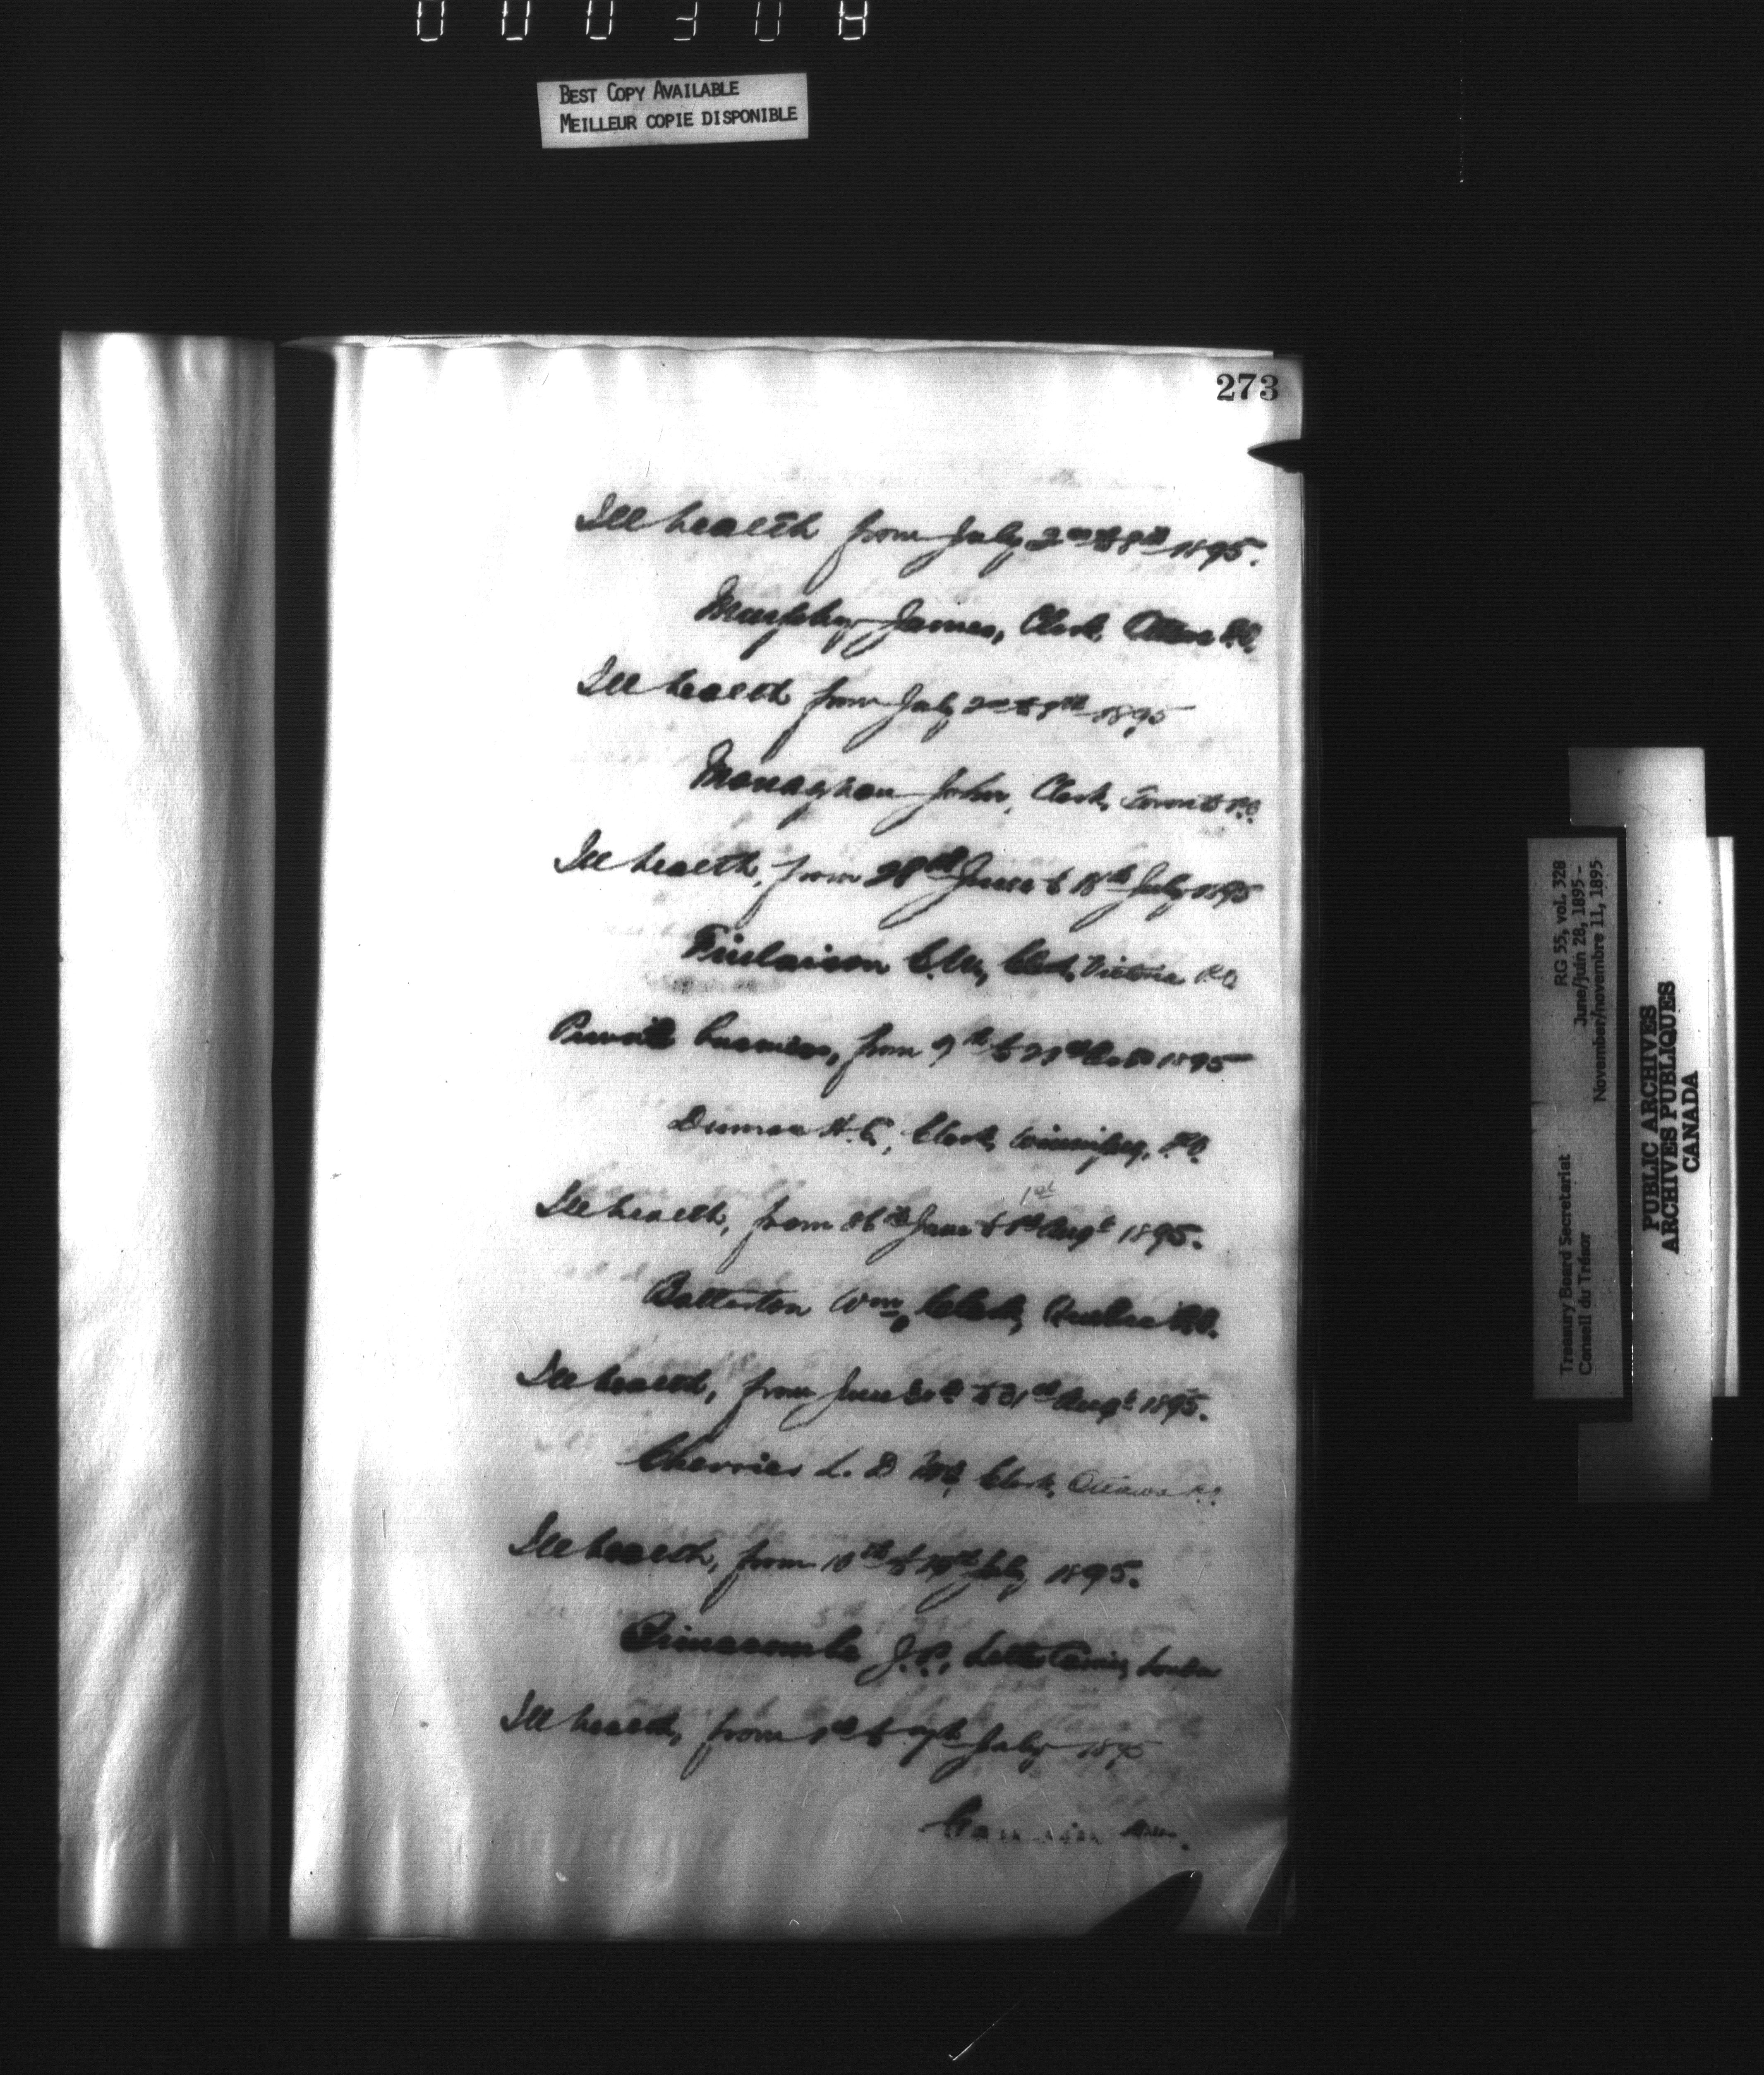 BEST COPY AVAILABLE
MEILLEUR COPIE DISPONIBLE
273
Ill health from July 2nd to 8th 1895.
Murphy James, Clerk, Ottawa P.O.
Ill health from July 2nd to 9th 1895
Monaghan John, Clerk, Toronto P.O.
Ill health, from 28th June to 18th July 1895
Finlaison C.W., Clerk, Victoria P.O.
Private business, from 9th to 1895
H. C., Clerk, Winnipeg, P.O.
1st
Ill health, from 26th June to 1st Augt 1895.
Batterton Wm, Clerk, Quebec P.O.
Ill health, from June to 31st Augt 1895.
Cherrier L. D. Clerk, Ottawa P.O.
Ill health, from 10th to 19th July 1895.
Brimacombe J.P., Letter Carrier, London
Ill health, from 1st to 7th July 1895
RG 55, vol. 328
June/juin 28, 1895 -
November/novembre 11, 1895
Treasury Board Secretariat
Conseil du Trésor
PUBLIC ARCHIVES
ARCHIVES PUBLIQUES
CANADA